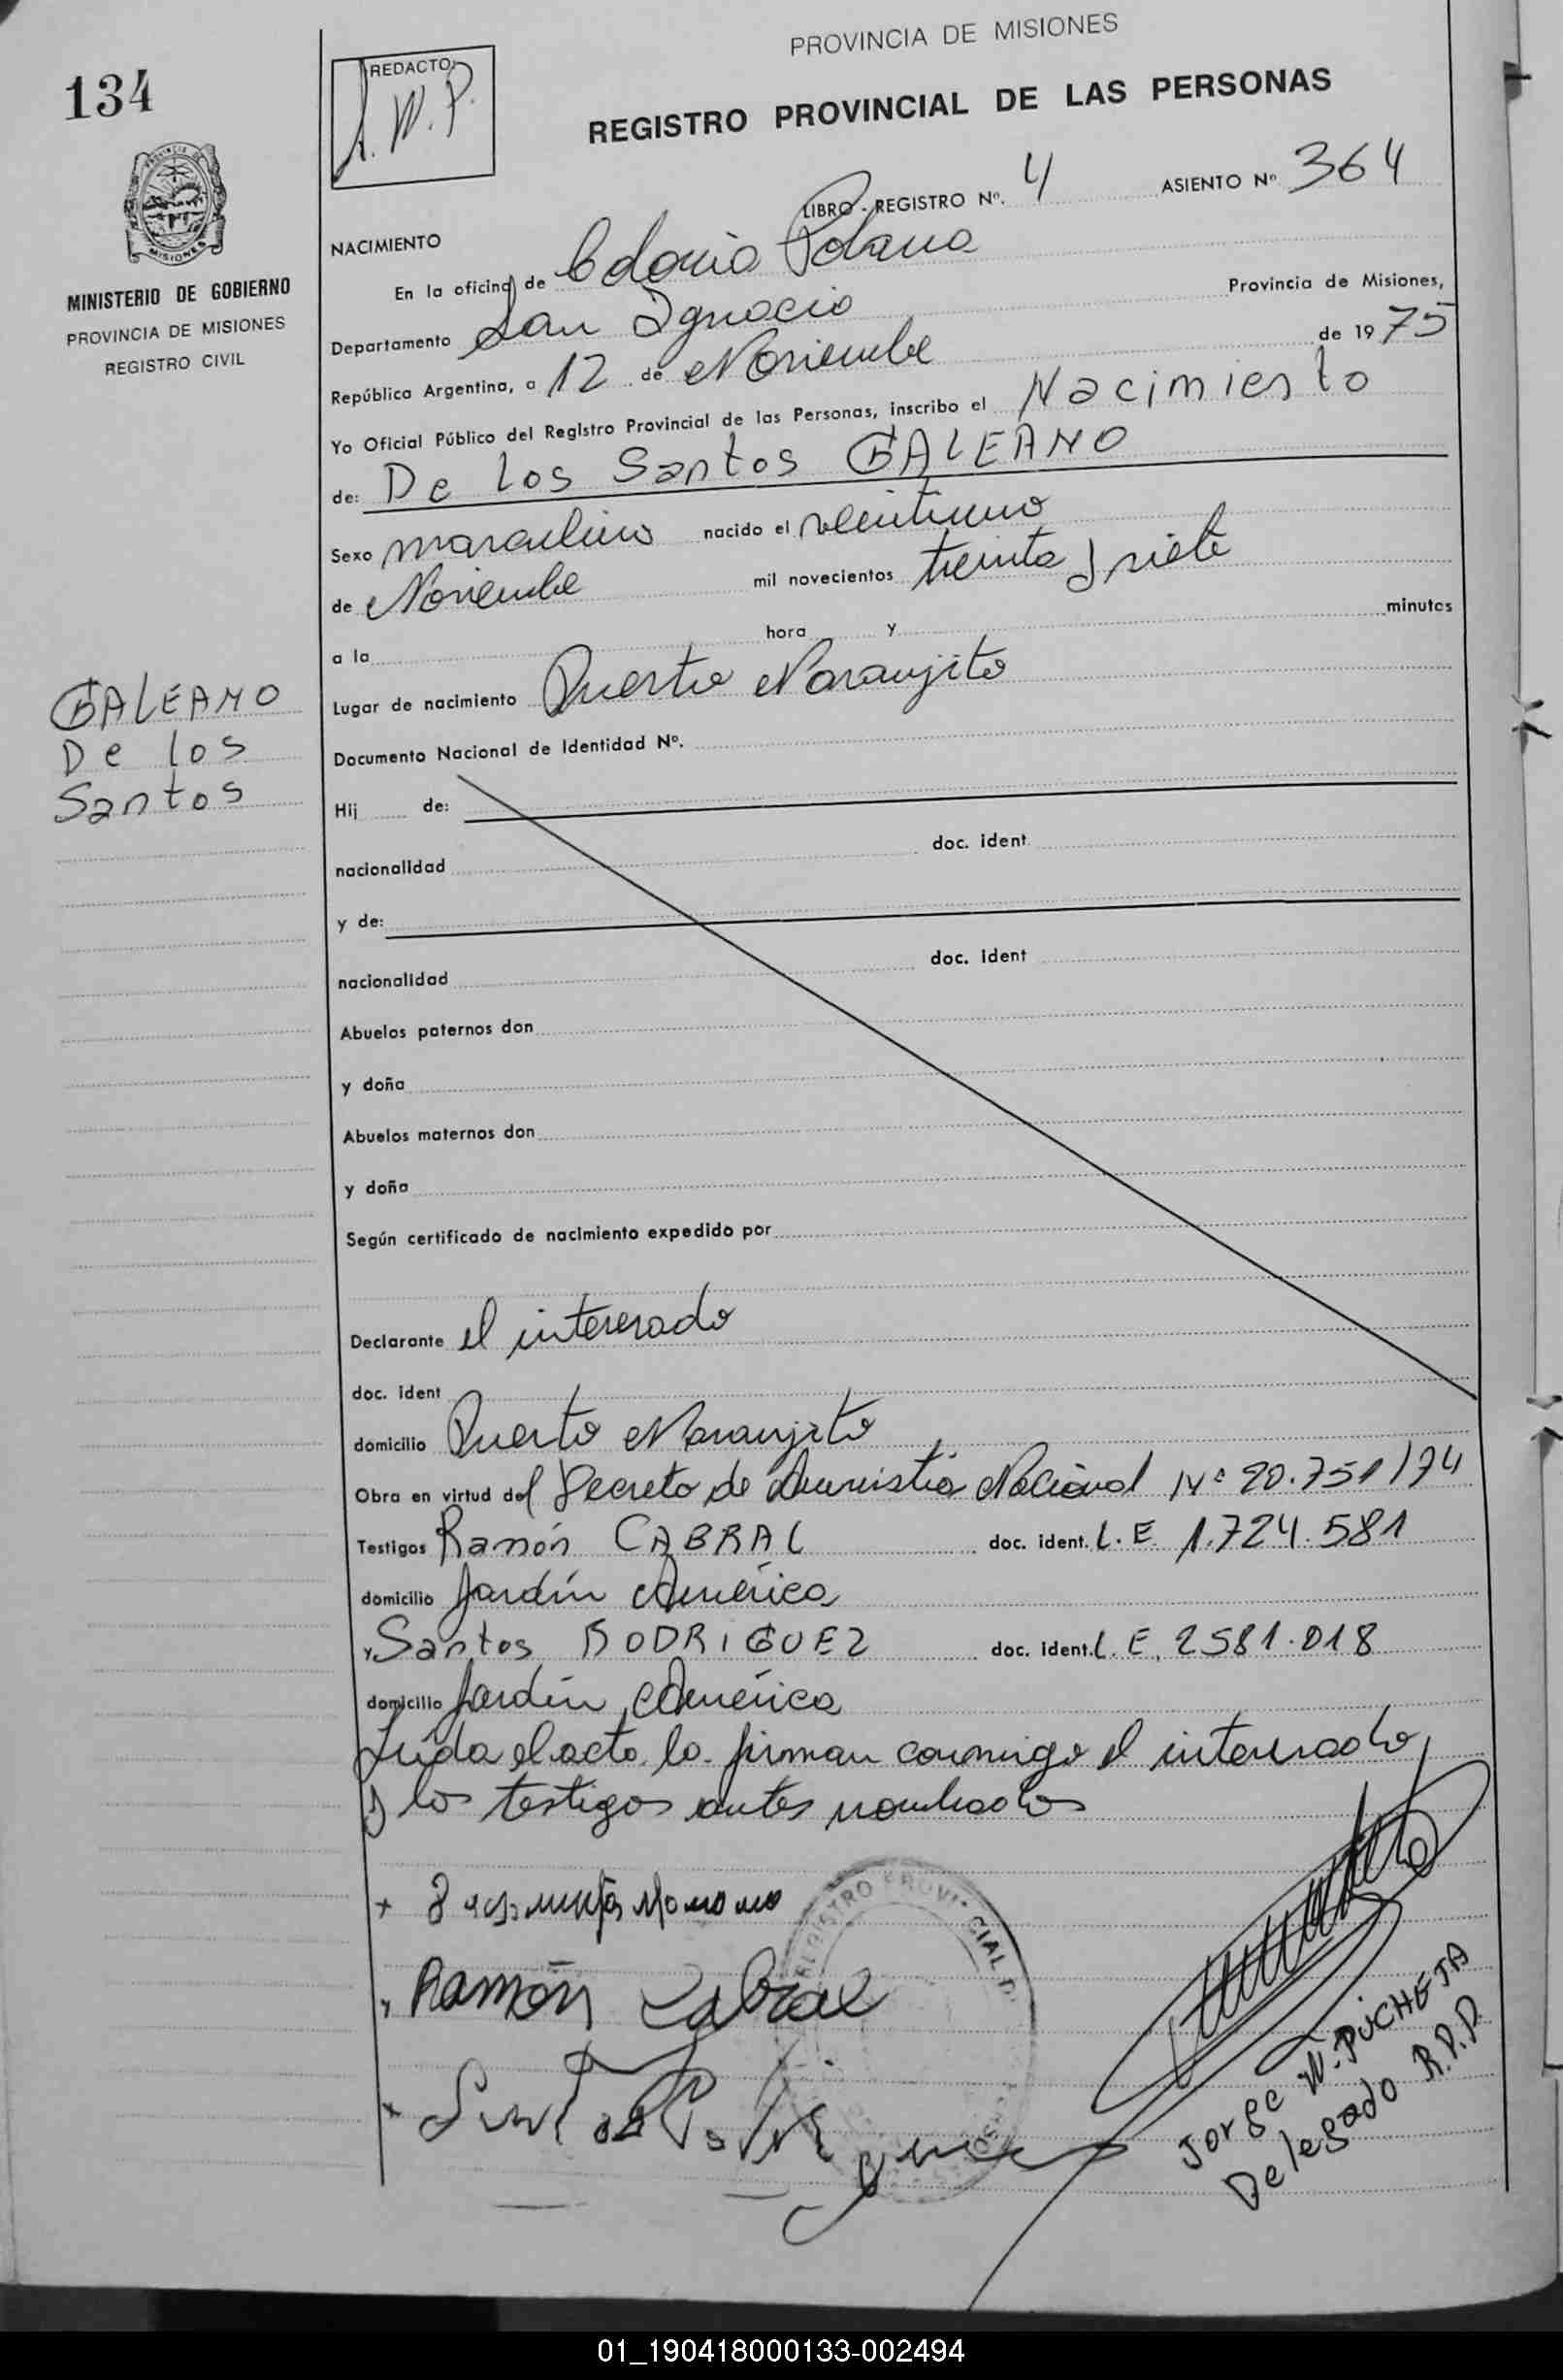 134
PROVINCIA DE MISIONES
REDACTO:
J. W. P.
REGISTRO PROVINCIAL DE LAS PERSONAS
LIBRO - REGISTRO Nº. 4 ASIENTO Nº 364
MISIONES
MINISTERIO DE GOBIERNO
PROVINCIA DE MISIONES
REGISTRO CIVIL
NACIMIENTO
En la oficina de Colonia Polana
Departamento San Ignacio Provincia de Misiones,
República Argentina, a 12 de Noviembre de 1975
Yo Oficial Público del Registro Provincial de las Personas, inscribo el Nacimiento
de: De los Santos GALEANO
Sexo masculino nacido el veintiuno
de Noviembre mil novecientos treinta y siete
a la hora y minutos
GALEANO
De los
Santos
Lugar de nacimiento Puerto Naranjito
Documento Nacional de Identidad Nº.
Hij de:
nacionalidad doc. ident
y de:
nacionalidad doc. ident
Abuelos paternos don
y doña
Abuelos maternos don
y doña
Según certificado de nacimiento expedido por
Declarante el interesado
doc. ident
domicilio Puerto Naranjito
Obra en virtud del Decreto de Amnistía Nacional Nº 20.751/74
Testigos Ramón CABRAL doc. ident. L. E. 1.724.581
domicilio Jardín América
y Santos RODRIGUEZ doc. ident. L. E. 2581.018
domicilio Jardín América
Leída el acto lo firman conmigo el interesado
y los testigos antes nombrados
Ramón Cabral
REGISTRO PROVINCIAL D
Jorge W. PUCHETA
Delegado R.P.P.
01_190418000133-002494